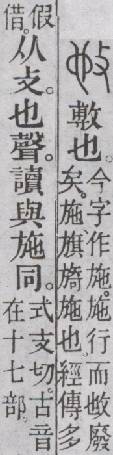 𢻱 敷也。今字作施。施行而𢻱廢
矣。施旗旖施也。經傳多
假
借。从攴。也聲。讀與施同。式支切。古音
在十七部